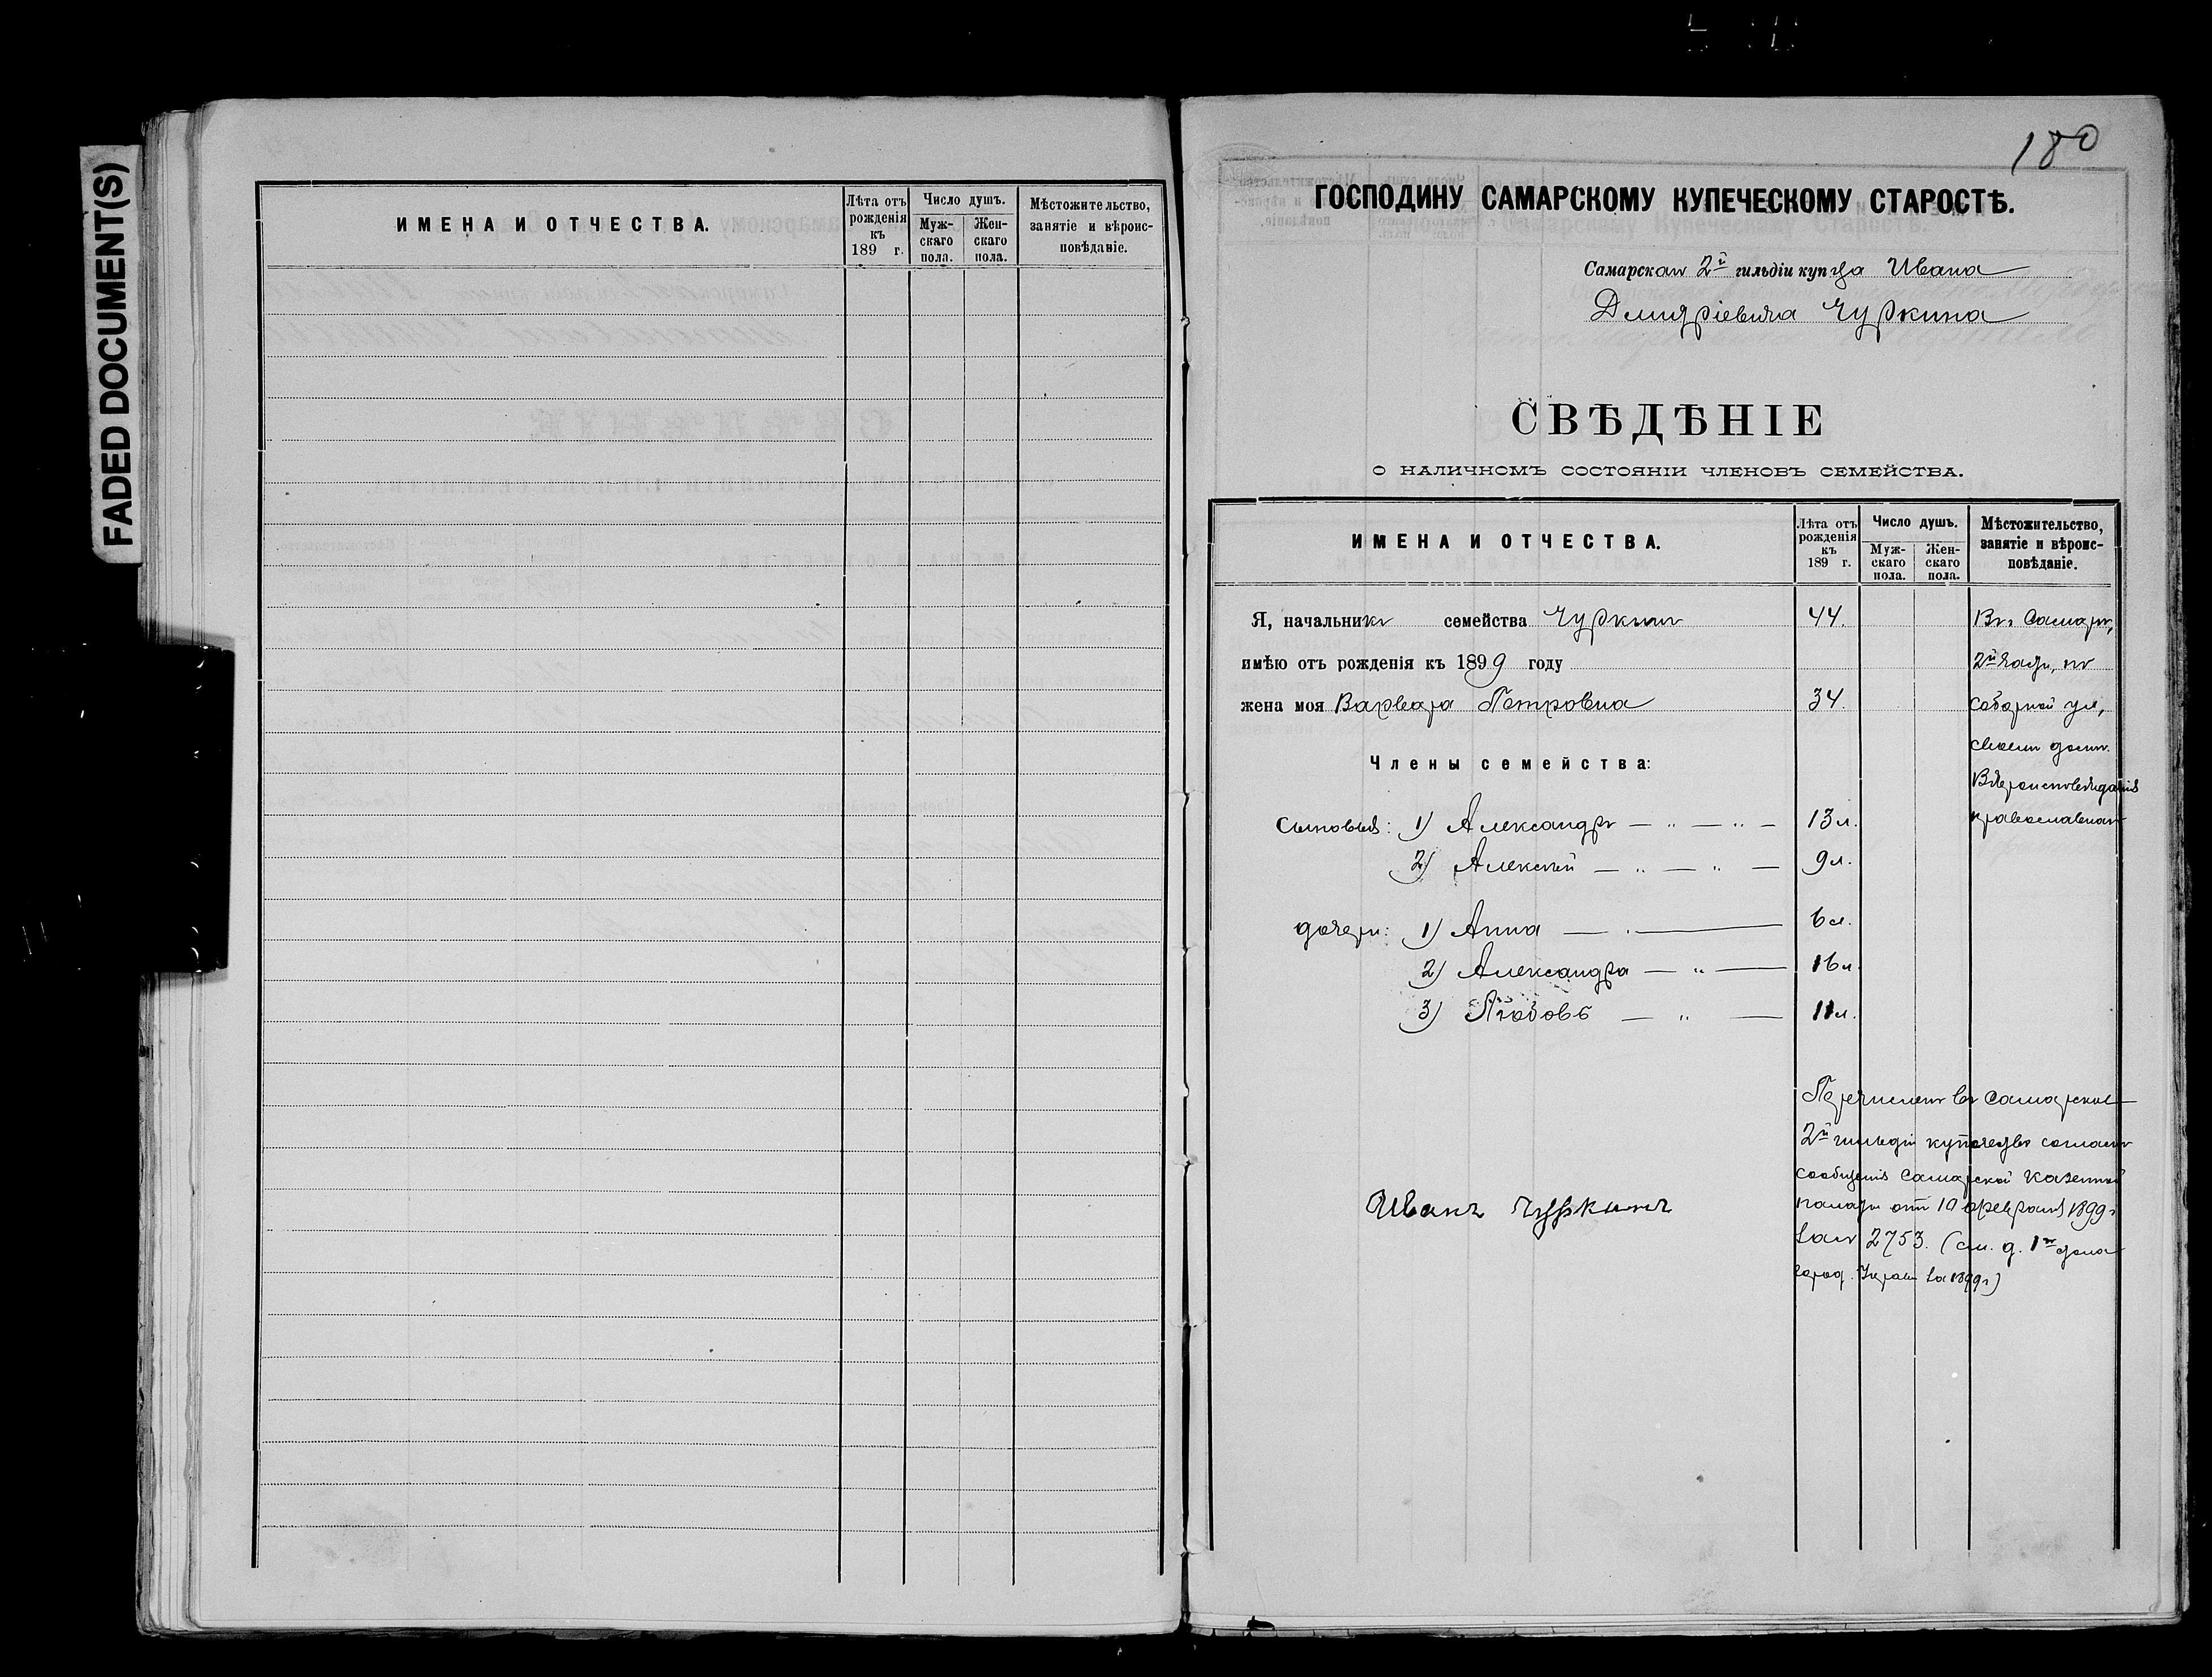 FADED DOCUMENT(S)
ИМЕНА И ОТЧЕСТВА.
Лѣта отъ рожденія къ 189 г.
Число душъ.
Муж-скаго пола.
Жен-скаго пола.
Мѣстожительство, занятіе и вѣроис-повѣданіе.
180
ГОСПОДИНУ САМАРСКОМУ КУПЕЧЕСКОМУ СТАРОСТѢ.
Самарскаго 2й гильдіи купца Ивана
Дмитріевича Чуркина
СВѢДѢНІЕ
О НАЛИЧНОМЪ СОСТОЯНІИ ЧЛЕНОВЪ СЕМЕЙСТВА.
ИМЕНА И ОТЧЕСТВА.
Лѣта отъ рожденія къ 189 г.
Число душъ.
Муж-скаго пола.
Жен-скаго пола.
Мѣстожительство, занятіе и вѣроис-повѣданіе.
Я, начальникъ семейства Чуркинъ 44. Въ г. Самарѣ,
имѣю отъ рожденія къ 1899 году 2й части, по
жена моя Варвара Петровна 34. Соборной ул,
своемъ домѣ.
Члены семейства:
Вѣроисповѣданія
Сыновья: 1) Александръ — „ — „ — 13 л. православнаго
2) Алексѣй — „ — „ — 9 л.
дочери: 1) Анна — „ — 6 л.
2) Александра — „ — 16 л.
3) Любовь — „ — 11 л.
Перечисленъ въ Самарское
2й гильдіи купечество согласно
сообщенія Самарской Казенной
палаты отъ 10 февраля 1899 г
за № 2753. (см. д. 1го стола
Город. Управы за 1899 г)
Иванъ Чуркинъ